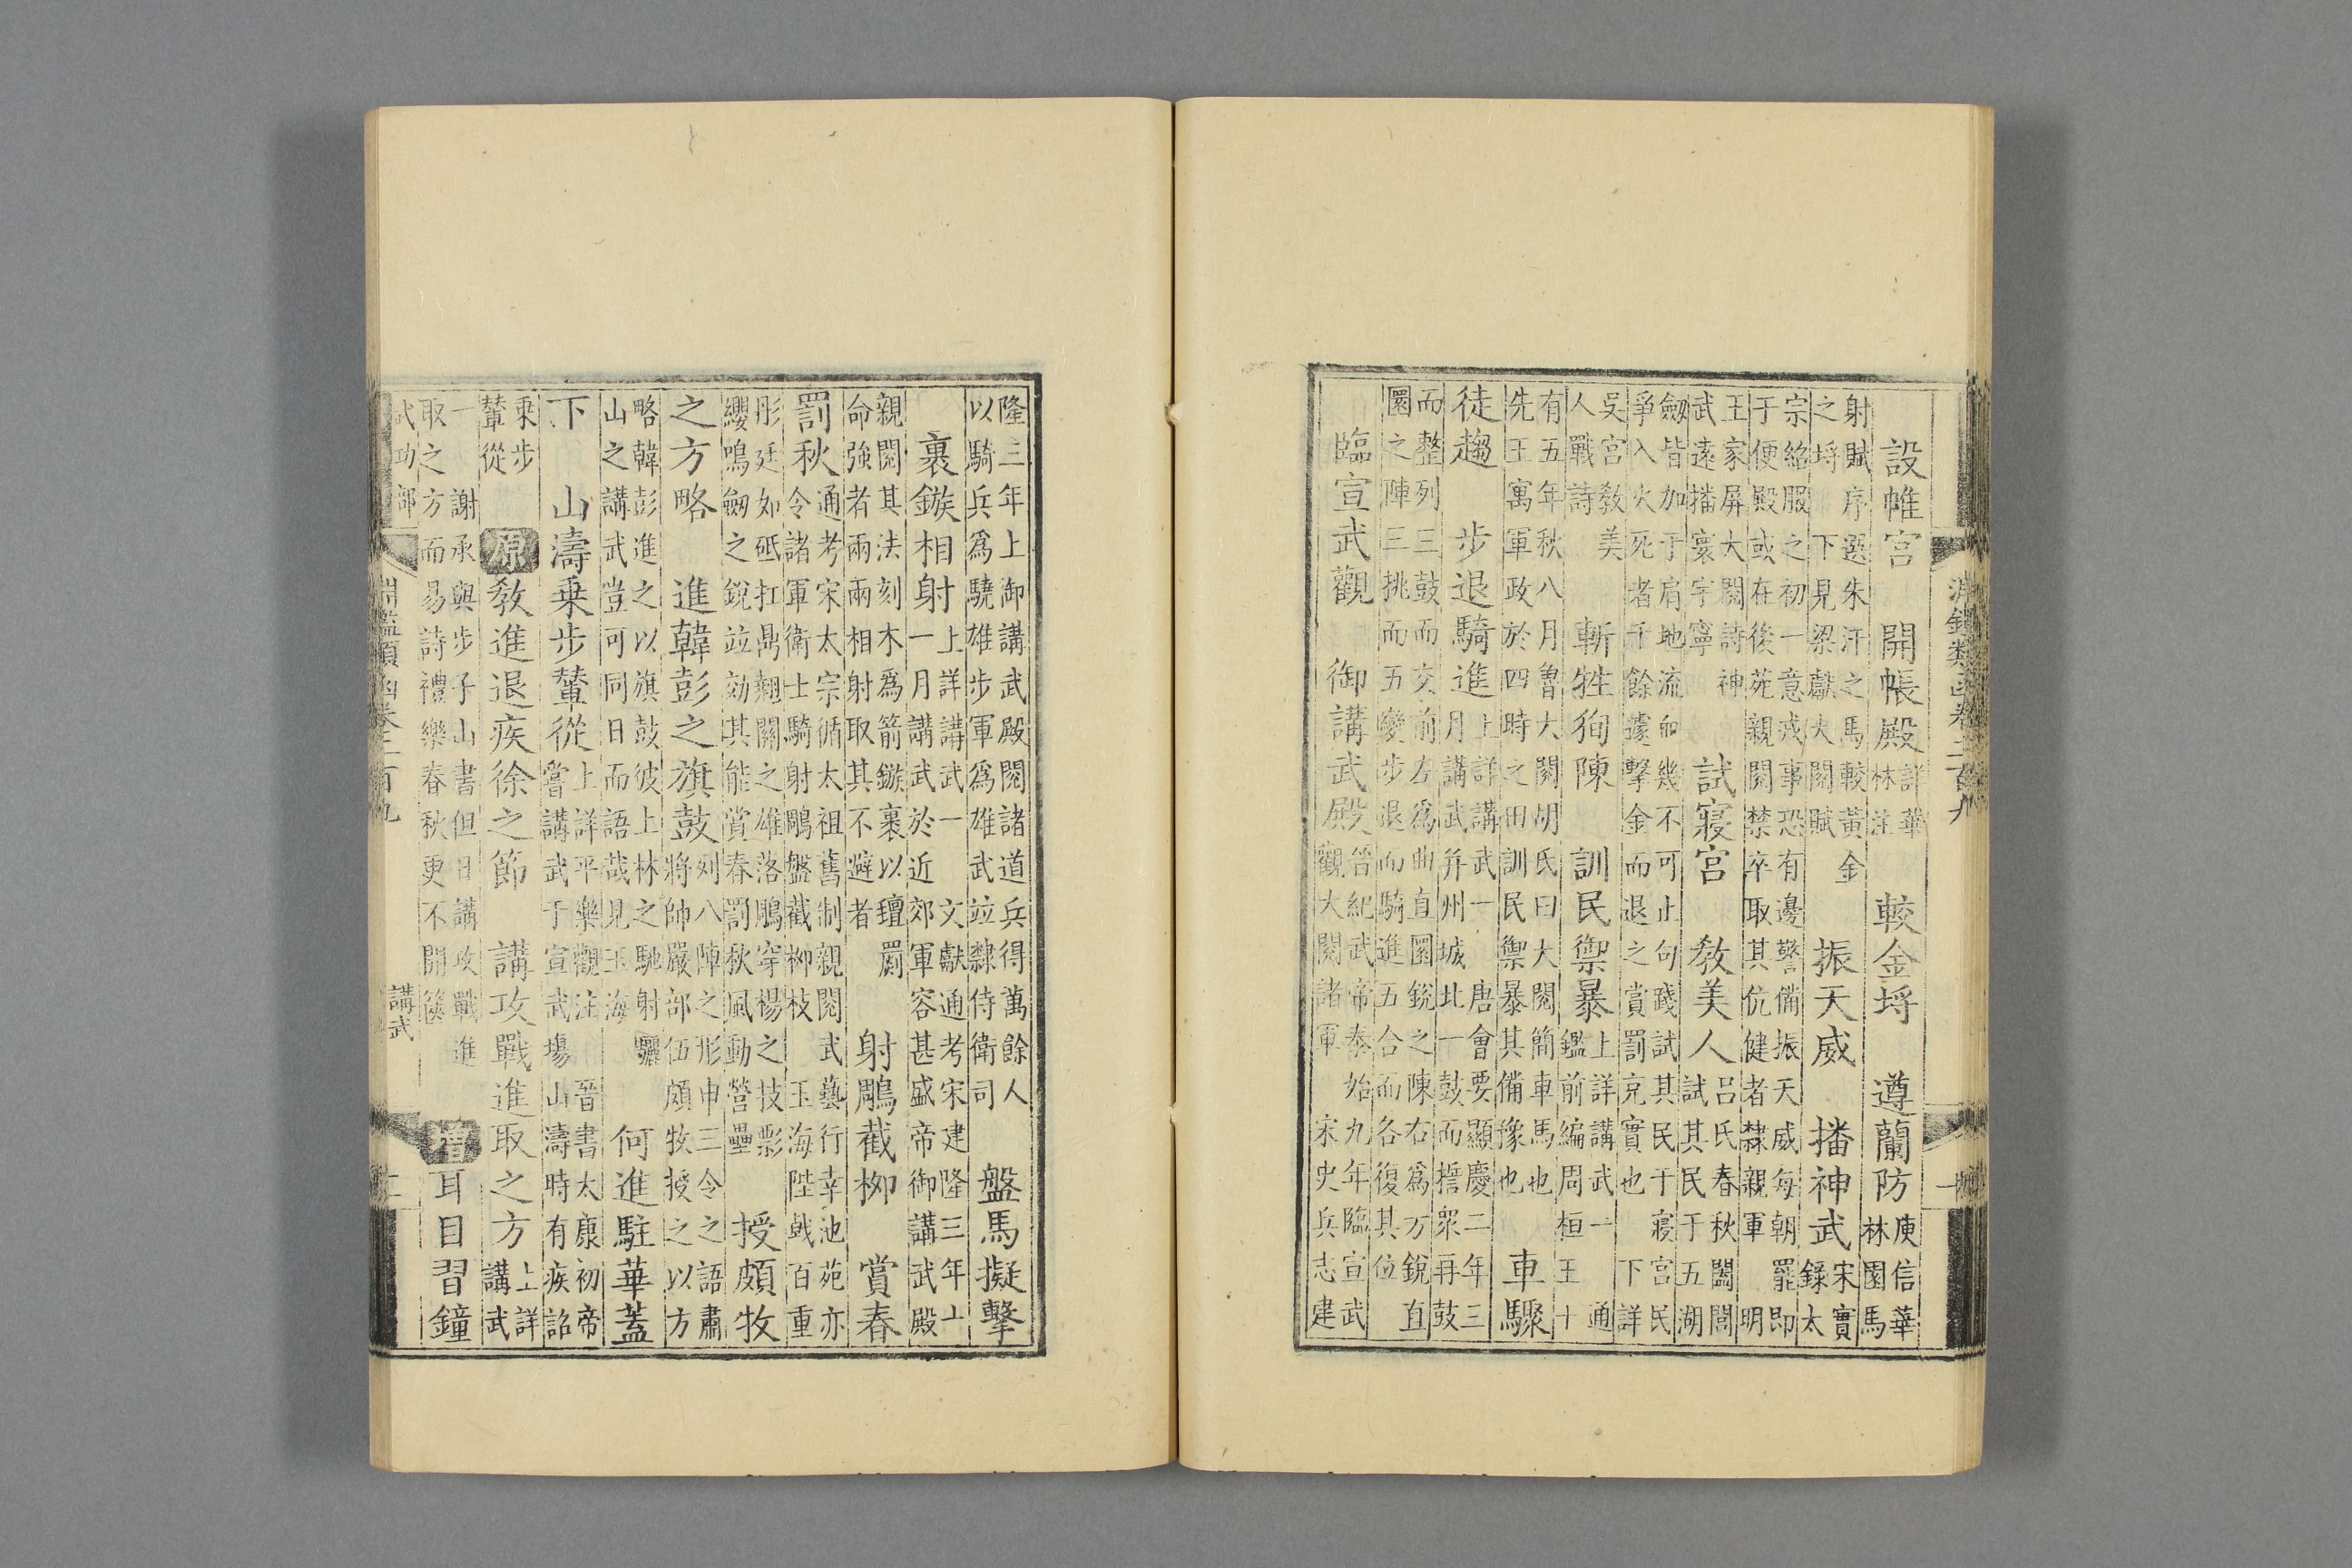 淵鑑類函卷二百九
設帷宮　開帳殿詳華林注　較金埒　遵蘭防庾信華林園馬
射賦序選朱汗之馬較黃金之埒　下見梁獻大閱賦　振天威　播神武宋實錄太
宗絁服之初一意戎事恐有邊警備振天威每朝罷即于便殿或在後苑親閱禁卒取其伉健者隸親軍　明
王家屏大閱詩神武遠播寰宇寧　試寢宮　教美人呂氏春秋闔閭試其民于五湖
劔皆加于肩地流血幾不可止句踐試其民于寢宮民爭入火死者千餘遽擊金而退之賞罰充實也　下詳
吳宮教美人戰詩　斬牲狥陳　訓民禦暴上詳講武一　通鑑前編周桓王十
有五年秋八月魯大閱胡氏曰大閱簡車馬也先王寓軍政於四時之田訓民禦暴其備豫也　車驟
徒趨　步退騎進上詳講武一　唐會要顯慶二年三月講武幷州城北一鼓而誓衆再鼓
而整列三鼓而交前左爲曲直圜銳之陳右爲方銳直圜之陣三挑而五變步退而騎進五合而各復其位
臨宣武觀　御講武殿晉紀武帝泰始九年臨宣武觀大閱諸軍　宋史兵志建
隆三年上御講武殿閱諸道兵得萬餘人以騎兵爲驍雄步軍爲雄武竝隸侍衛司　盤馬擬擊
裹鏃相射上詳講武一　文獻通考宋建隆三年十一月講武於近郊軍容甚盛帝御講武殿
親閱其法刻木爲箭鏃裹以氊罽命強者兩兩相射取其不避者　射鵰截栁　賞春
罰秋通考宋太宗循太祖舊制親閱武藝行幸池苑亦令諸軍衛士騎射鵰盤截栁枝　玉海陛戟百重
彤廷如砥扛鼎翹關之雄落鵰穿楊之技彯纓鳴劔之銳竝効其能賞春罰秋風動營壘　授頗牧
之方略　進韓彭之旗鼓列八陣之形申三令之語肅將帥嚴部伍頗牧授之以方
略韓彭進之以旗鼓彼上林之馳射驪山之講武豈可同日而語哉見玉海　何進駐華蓋
下　山濤乗步輦從上詳平樂觀注　晉書太康初帝嘗講武于宣武塲山濤時有疾詔
乗步輦從　原　教進退疾徐之節　講攻戰進取之方上詳講武
一　謝承與步子山書但日講攻戰進取之方而易詩禮樂春秋更不開篋　增　耳目習鐘
武功部　淵鑑類函卷二百九　講武